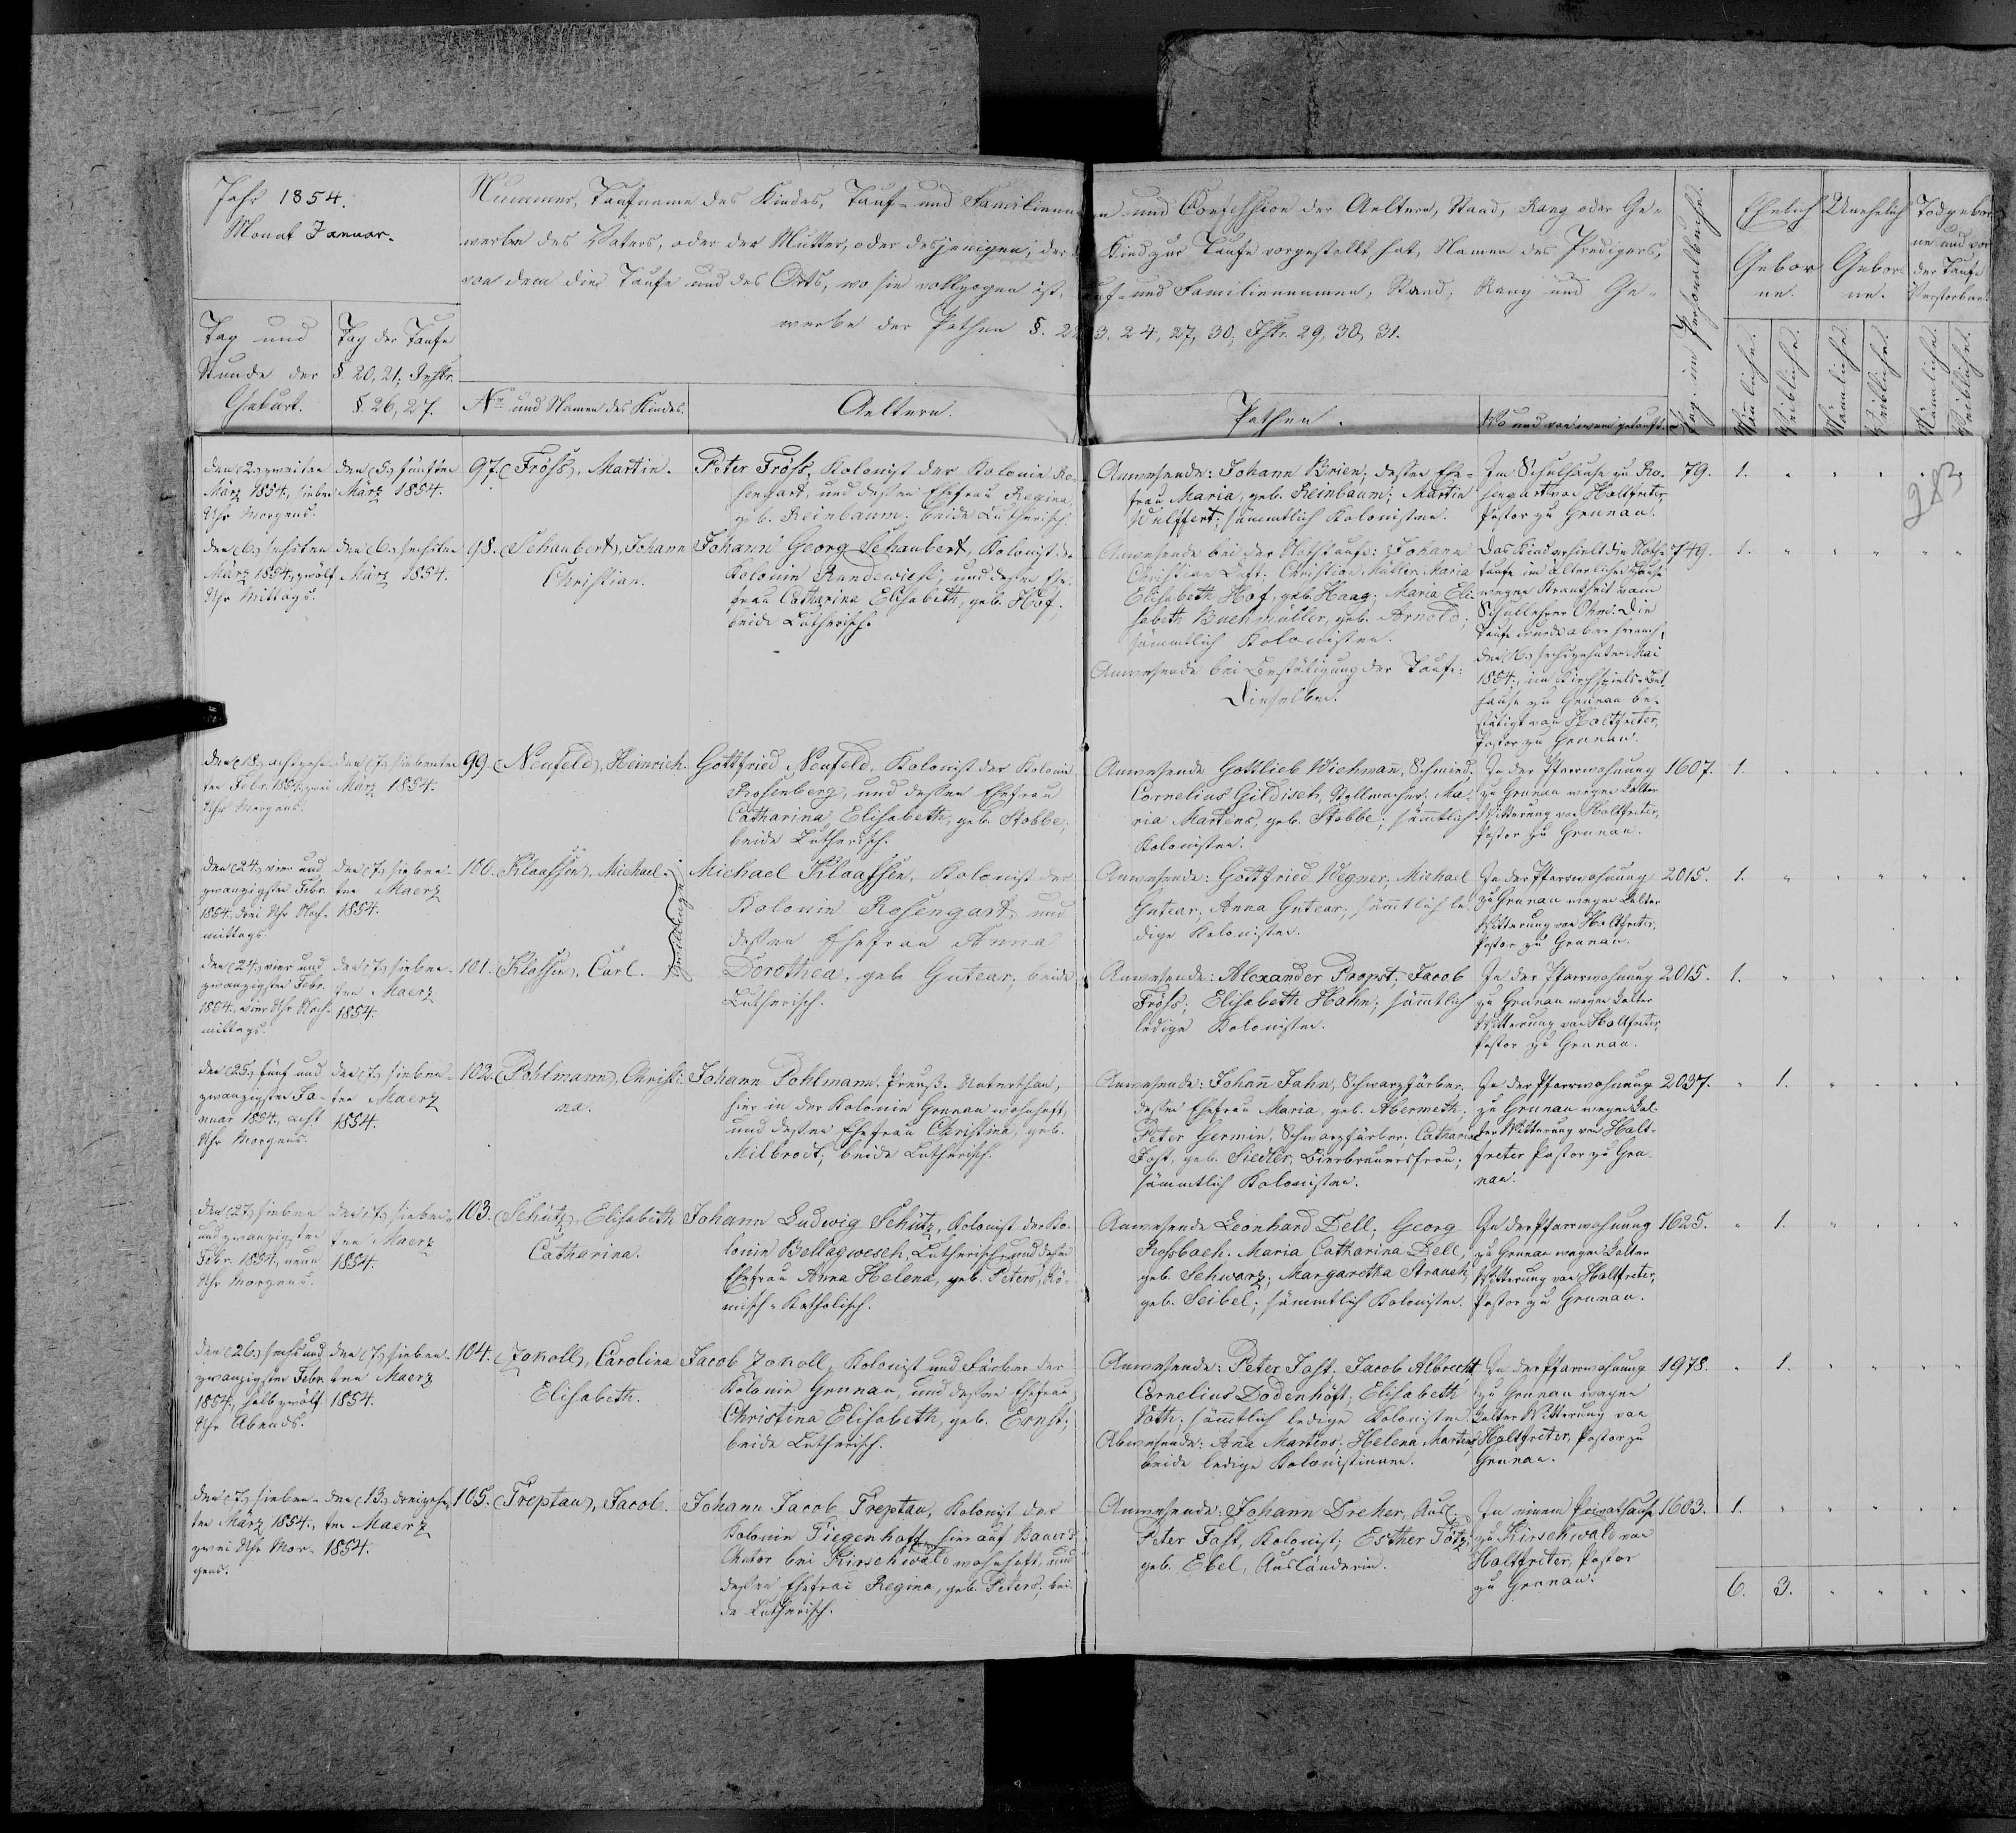 Jahr 1854.
Monat Januar.
Nummer, Taufname des Kindes, Tauf- und Familiennamen und Confession der Aeltern, Stand, Rang oder Ge-
werbe des Vaters, oder der Mutter, oder desjenigen, der das Kind zur Taufe vorgestellt hat, Namen des Predigers,
von dem die Taufe und des Orts, wo sie vollzogen ist, Tauf- und Familiennamen, Stand, Rang und Ge-
werbe der Pathen §. 22, 23, 24, 27, 30; Istr. 29, 30, 31.
Tag und
Stunde der
Geburt.
Tag der Taufe
§. 20, 21; Instr.
§. 26, 27.
No und Namen des Kindes.
Aeltern.
Pathen.
Wo und von wem getauft.
Pag. im Personalbuche.
Ehelich
Gebor
ne.
Unehelich
Gebor
ne.
Todgebor
ne und vor
der Taufe
Verstorbene
Mänliche.
Weibliche.
Mänliche.
Weibliche.
Mänliche.
Weibliche.
283
den (2.) zweiten
März 1854, sieben
Uhr Morgens.
den (5.) fünften
März 1854.
97. (Fröss), Martin.
Peter Fröss, Kolonist der Kolonie Ro-
sengart, und dessen Ehefrau Regina,
geb. Reinbaum. beide Lutherisch.
Anwesende: Johann Brien; dessen Ehe-
frau Maria, geb. Reinbaum; Martin
Wulffert; sämmtlich Kolonisten.
Im Schulhause zu Ro-
sengart von Holtfreter,
Pastor zu Grunau.
79. 1.
den (6.) sechsten
März 1854, zwölf
Uhr Mittags.
den (6.) sechsten
März 1854.
98. (Schaubert), Johann
Christian.
Johann Georg Schaubert, Kolonist der
Kolonie Rundewiese, und dessen Ehe-
frau Catharina Elisabeth, geb. Hof,
beide Lutherisch.
Anwesende bei der Nothtaufe: Johann
Christian Luft. Christian Müller, Maria
Elisabeth Hof, geb. Haag; Maria Eli-
sabeth Buchmüller, geb. Arnold;
sämmtlich Kolonisten.
Anwesende bei Bestätigung der Taufe:
Dieselben.
Das Kind erhielt die Noth-
taufe im älterlichen Hause
wegen Krankheit vom
Schullehrer Die
Taufe wurde aber hernach,
den (16.) sechszehnten Mai
1854, im Kirchspiels-Bet-
hause zu Grunau be-
stätigt von Holtfreter,
Pastor zu Grunau.
749. 1.
den (18.) achtzehn-
ten Febr. 1854, zwei
Uhr Morgens.
den (7.) siebenten
März 1854.
99. (Neufeld), Heinrich.
Gottfried Neufeld, Kolonist der Kolonie
Rosenberg, und dessen Ehefrau
Catharina Elisabeth, geb. Stobbe;
beide Lutherisch.
Anwesende Gottlieb Wichmann, Schmied;
Cornelius Gildisch, Stellmacher; Ma-
ria Martens, geb. Stobbe; sämmtlich
Kolonisten.
In der Pfarrwohnung
zu Grunau wegen kalter
Witterung von Holtfreter,
Pastor zu Grunau.
1607. 1.
den (24.) vier und
zwanzigsten Febr.
1854, drei Uhr Nach-
mittags.
den (7.) sieben-
ten Maerz
1854.
100. (Klaassen), Michael.
Zwillinge
Michael Klaassen, Kolonist der
Kolonie Rosengart, und
dessen Ehefrau Anna
Dorothea, geb Gutear; beide
Lutherisch.
Anwesende: Gottfried Wegner, Michael
Gutear; Anna Gutear; sämmtlich le-
dige Kolonisten.
In der Pfarrwohnung
zu Grunau wegen kalter
Witterung von Holtfreter,
Pastor zu Grunau.
2015. 1.
den (24.) vier und
zwanzigsten Febr.
1854, vier Uhr Nach-
mittags.
den (7.) sieben-
ten Maerz
1854.
101. (Klassen), Carl.
Anwesende: Alexander Propst; Jacob
Fröss; Elisabeth Hahn; sämmtlich
ledige Kolonisten.
In der Pfarrwohnung
zu Grunau wegen kalter
Witterung von Holtfreter,
Pastor zu Grunau.
2015. 1.
den (25.) fünf und
zwanzigsten Ja-
nuar 1854, acht
Uhr Morgens.
den (7.) sieben-
ten Maerz
1854.
102. (Pohlmann), Christi-
na.
Johann Pohlmann, Preuß. Unterthan,
hier in der Kolonie Grunau wohnhaft,
und dessen Ehefrau Christina, geb.
Milbrodt; beide Lutherisch.
Anwesende: Johann Jahn, Schwarzfärber,
dessen Ehefrau Maria, geb. Abermeth;
Peter Germin, Schwarzfärber; Catharina
Fast, geb. Siedler, Bierbrauersfrau;
sämmtlich Kolonisten.
In der Pfarrwohnung
zu Grunau wegen kal-
ter Witterung von Holt-
freter Pastor zu Gru-
nau.
2037. 1.
den (27.) sieben
und zwanzigsten
Febr. 1854, neun
Uhr Morgens.
den (7.) sieben-
ten Maerz
1854.
103. (Schütz), Elisabeth
Catharina.
Johann Ludwig Schütz, Kolonist der Ko-
lonie Bellagwesch, Lutherisch, und dessen
Ehefrau Anna Helena, geb. Peters, Rö-
misch-Katholisch.
Anwesende Leonhard Dell; Georg
Rossbach. Maria Catharina Dell,
geb. Schwarz; Margaretha Strauch,
geb. Seibel; sämmtlich Kolonisten.
In der Pfarrwohnung
zu Grunau wegen kalter
Witterung von Holtfreter,
Pastor zu Grunau.
1625. 1.
den (26.) sechs und
zwanzigsten Febr.
1854, halb zwölf
Uhr Abends.
den (7.) sieben-
ten Maerz
1854.
104. (Jokoll), Carolina
Elisabeth.
Jacob Jokoll, Kolonist und Färber der
Kolonie Grunau, und dessen Ehefrau
Christina Elisabeth, geb. Ernst;
beide Lutherisch.
Anwesende: Peter Fast, Jacob Albrecht,
Cornelius Dodenhöft; Elisabeth
Voth; sämmtlich ledige Kolonisten.
Abwesende: Anna Martens; Helena Martens,
beide ledige Kolonistinnen.
In der Pfarrwohnung
zu Grunau wegen
kalter Witterung von
Holtfreter, Pastor zu
Grunau.
1978. 1.
den (7.) sieben-
ten März 1854,
zwei Uhr Mor-
gens.
den (13.) dreizehn-
ten Maerz
1854.
105. (Treptau), Jacob.
Johann Jacob Treptau, Kolonist der
Kolonie Tiegenhoff, hier auf Bauers
Chutor bei Kirschwald wohnhaft, und
dessen Ehefrau Regina, geb. Peters; bei-
de Lutherisch.
Anwesende: Johann Dreher, Ausl.;
Peter Fast, Kolonist; Esther Tötz,
geb. Ebel, Ausländerin.
In einem Privathause
zu Kirschwald von
Holtfreter, Pastor
zu Grunau.
1603. 1.
6. 3.